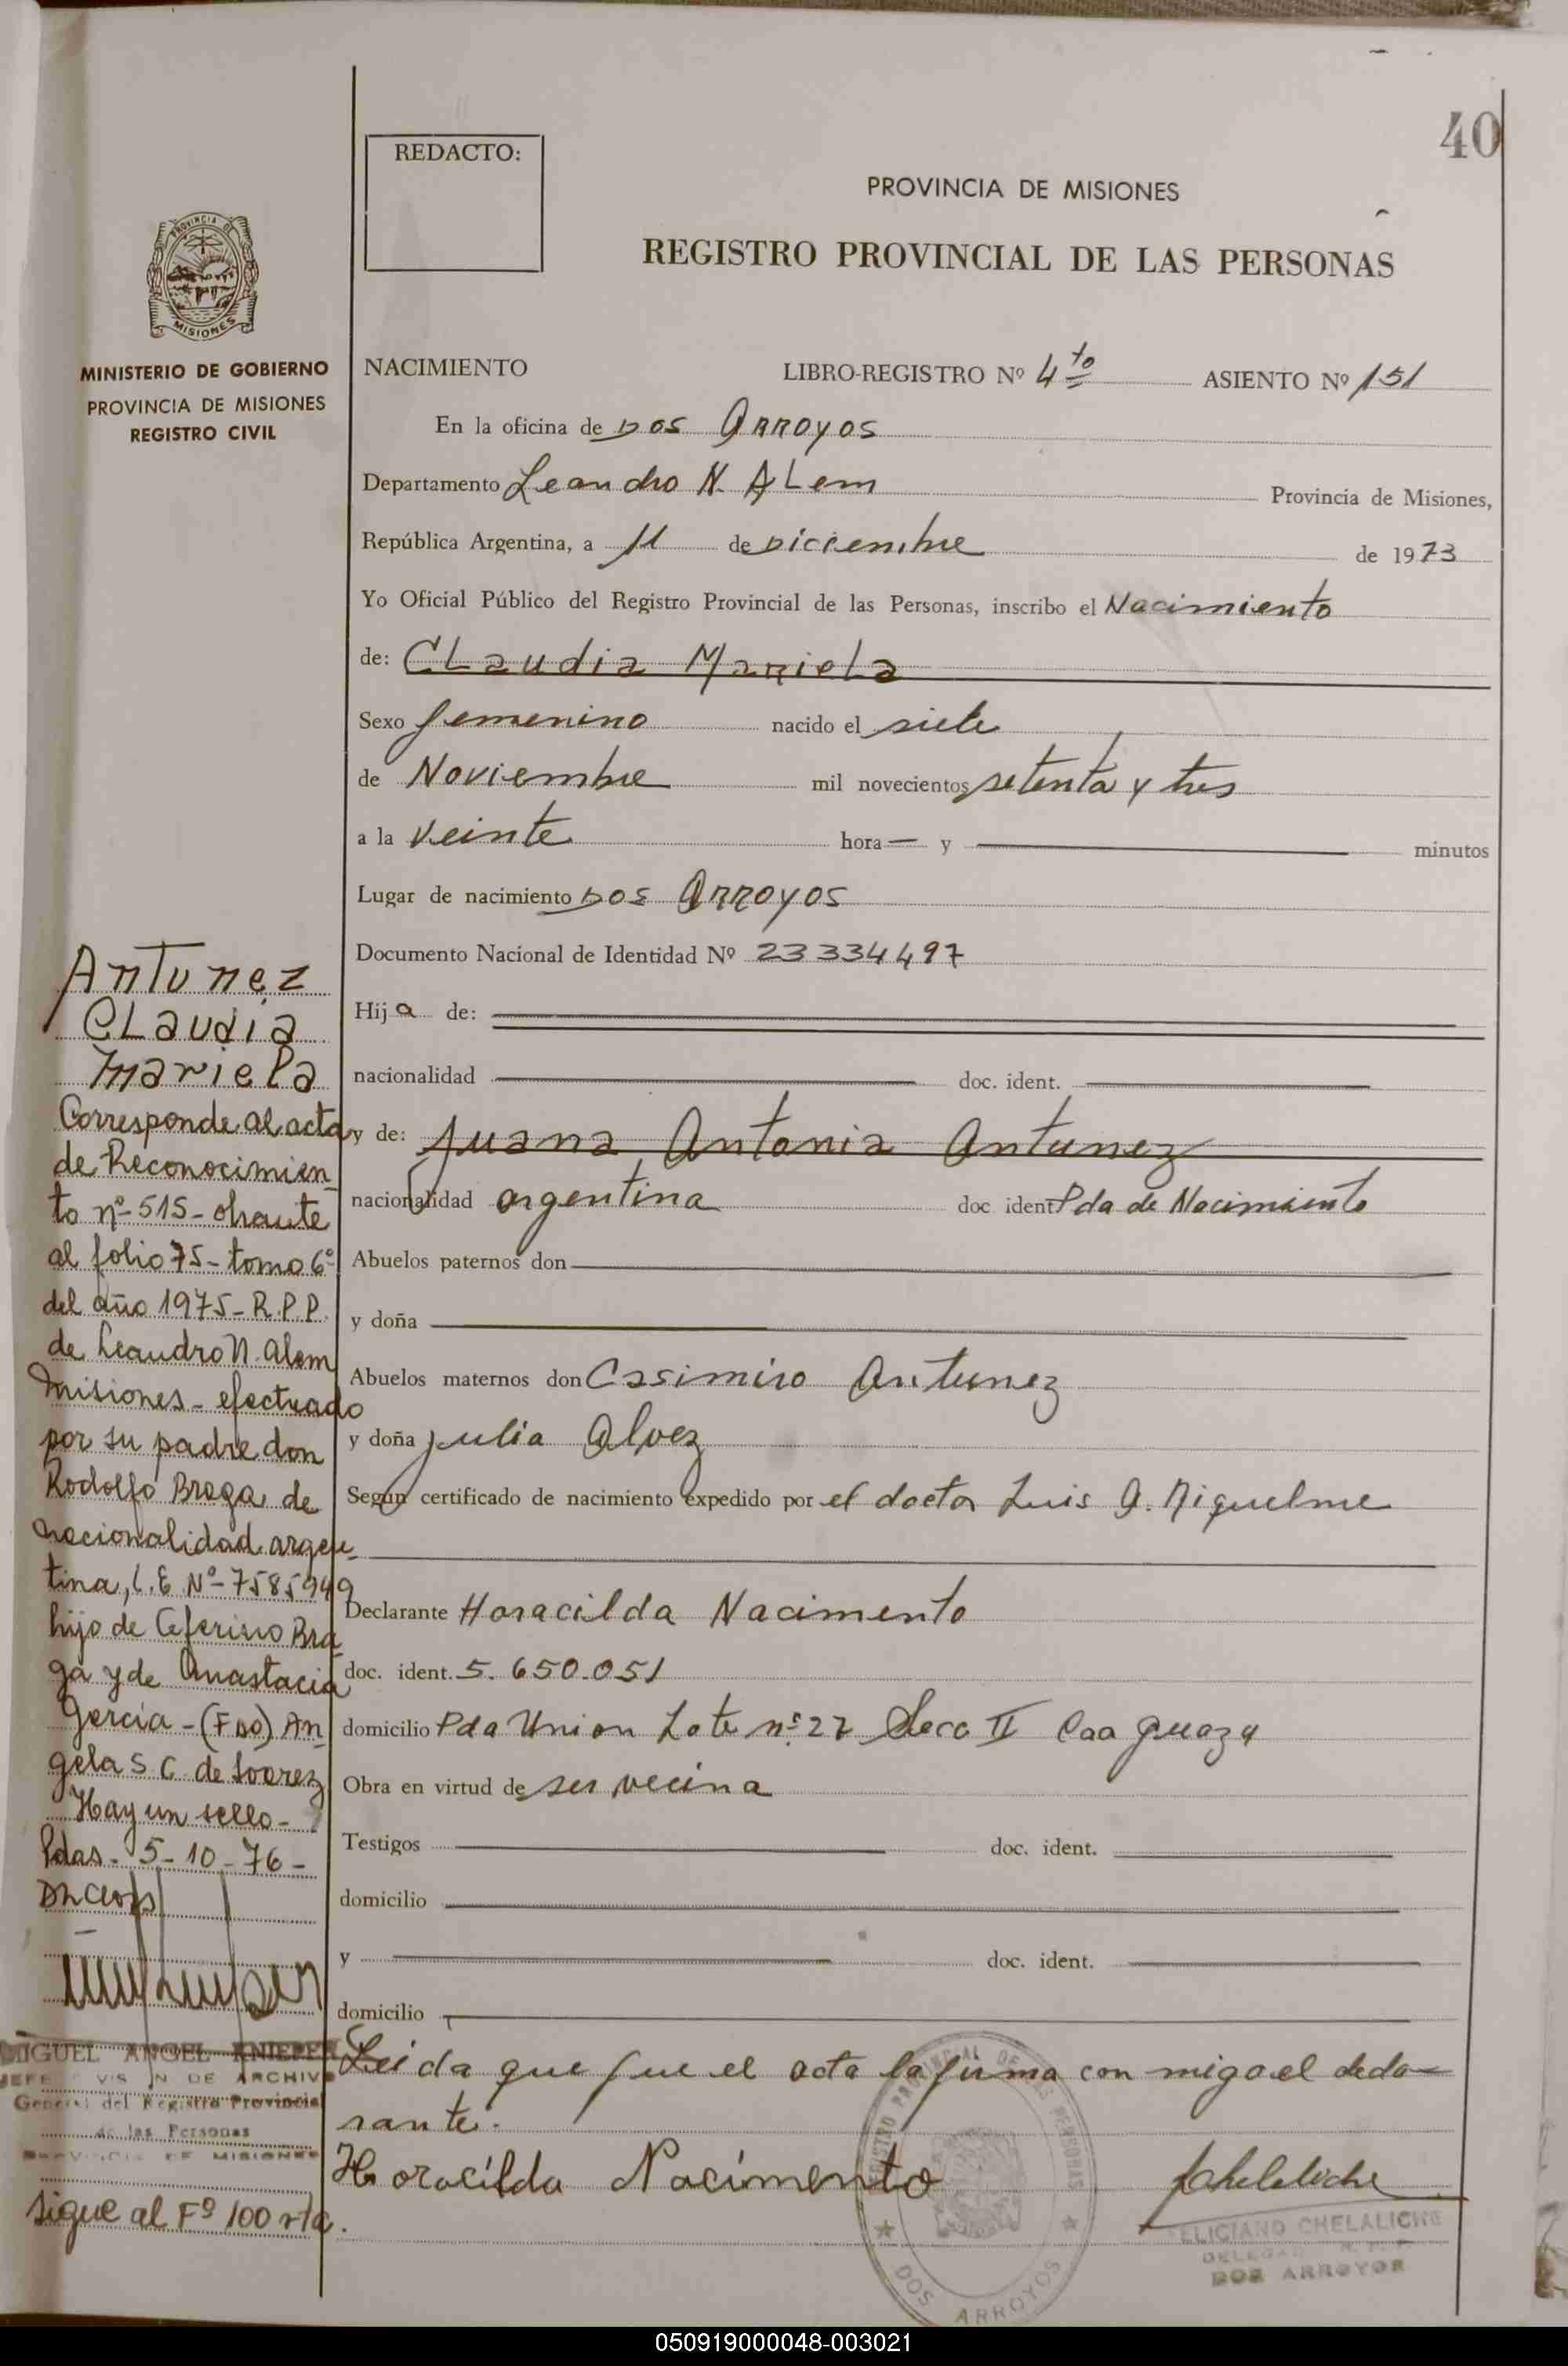 40
REDACTO:
PROVINCIA DE MISIONES
REGISTRO PROVINCIAL DE LAS PERSONAS
PROVINCIA DE
MISIONES
MINISTERIO DE GOBIERNO
PROVINCIA DE MISIONES
REGISTRO CIVIL
NACIMIENTO LIBRO-REGISTRO Nº 4to ASIENTO Nº 151
En la oficina de Dos Arroyos
Departamento Leandro N. ALem Provincia de Misiones,
República Argentina, a 11 de Diciembre de 1973
Yo Oficial Público del Registro Provincial de las Personas, inscribo el Nacimiento
de: CLaudia Mariela
Sexo femenino nacido el siete
de Noviembre mil novecientos setenta y tres
a la veinte hora — y — minutos
Lugar de nacimiento Dos Arroyos
Documento Nacional de Identidad Nº 23334497
Hija de:
nacionalidad doc. ident.
y de: Juana Antonia Antunez
nacionalidad argentina doc ident Pda de Nacimiento
Abuelos paternos don
y doña
Abuelos maternos don Casimiro Antunez
y doña Julia Alvez
Según certificado de nacimiento expedido por el doctor Luis A. Riquelme
Declarante Horacilda Nacimento
doc. ident. 5.650.051
domicilio Pda Union Lote nº 27 Secc II Caa Guazu
Obra en virtud de ser vecina
Testigos doc. ident.
domicilio
y doc. ident.
domicilio
Leida que fue el acta la firma con migo el decla-
rante.
Horacilda Nacimento
FELICIANO CHELALICHE
DOS ARROYOS
DOS ARROYOS
Antunez
CLaudia
Mariela
Corresponde al acta
de Reconocimien
to nº 515- obrante
al folio 75- tomo 6º
del año 1975- R.P.P.
de Leandro N. Alem
Misiones- efectuado
por su padre don
Rodolfo Braga de
nacionalidad argen
tina, L.E Nº 7585949
hijo de Ceferino Bra
ga y de Anastacia
Garcia-(FDO) An
gela S C de Soarez
Hay un sello-
Pdas- 5-10-76-
MIGUEL ANGEL KNIEPER
JEFE DIVISION DE ARCHIVO
General del Registro Provincial
de las Personas
PROVINCIA DE MISIONES
Sigue al Fº 100 vta.
050919000048-003021